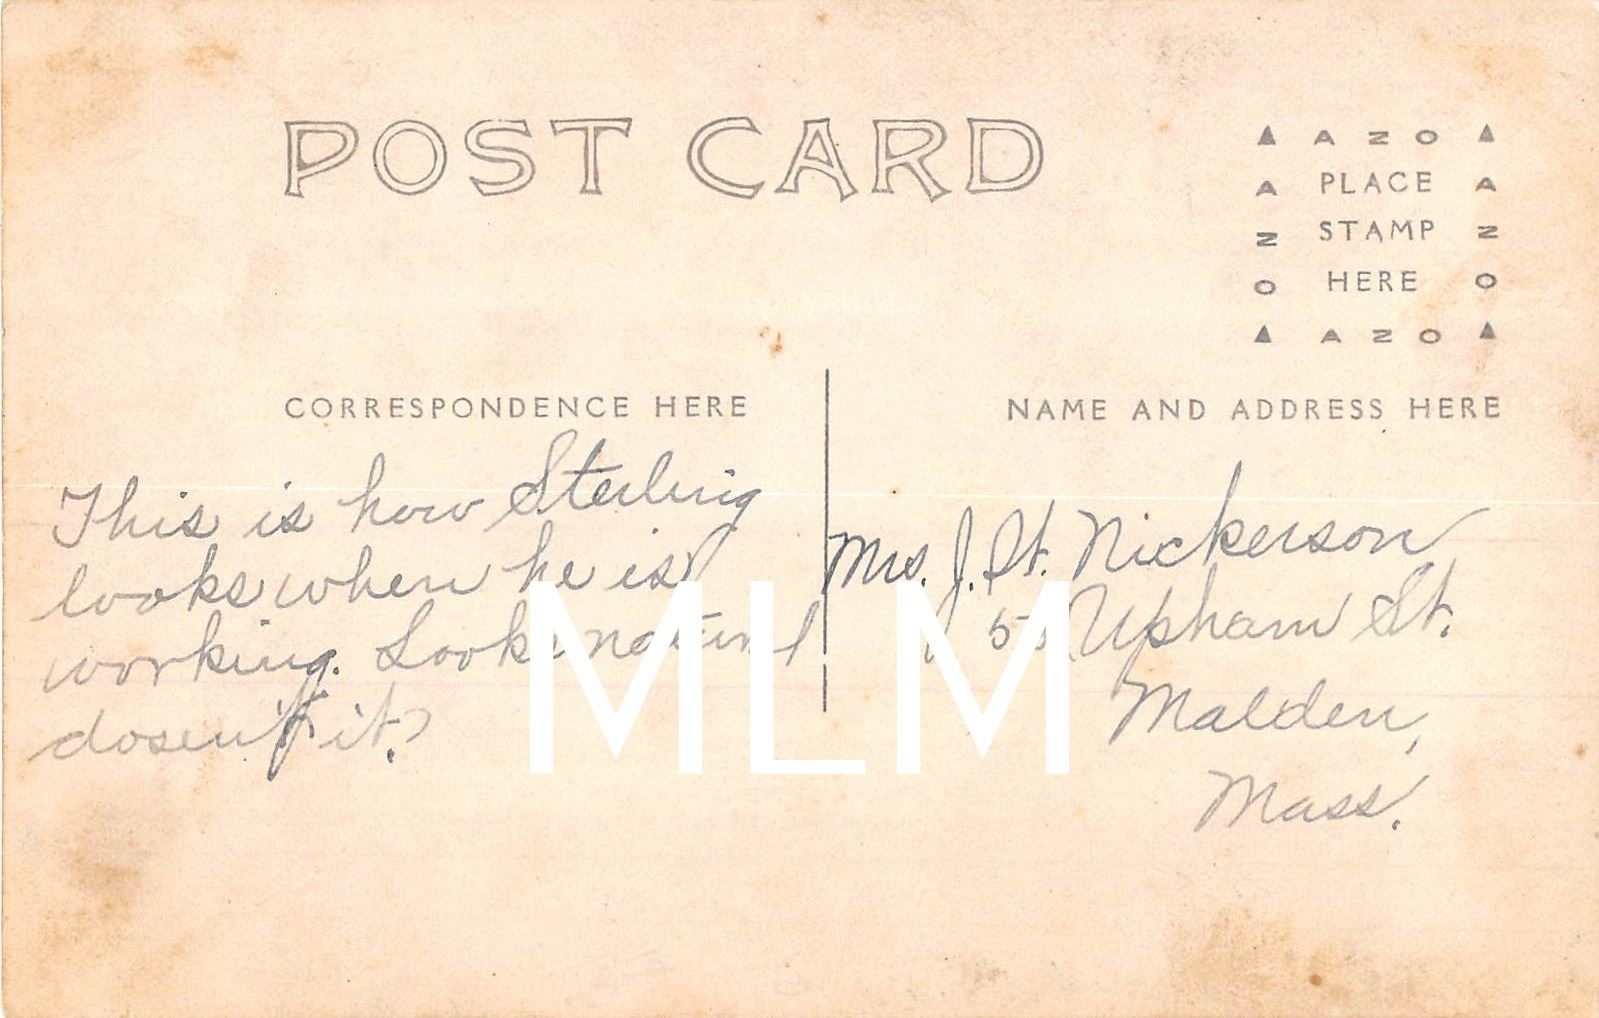 POST CARD
AZO
PLACE
STAMP
HERE
AZO
AZO
AZO
CORRESPONDENCE HERE
NAME AND ADDRESS HERE
This is how Sterling
looks when he is
working. Looks natural
dosen't it?
Mrs. J. St. Nickerson
Upham St.
Malden,
Mass.
MLM